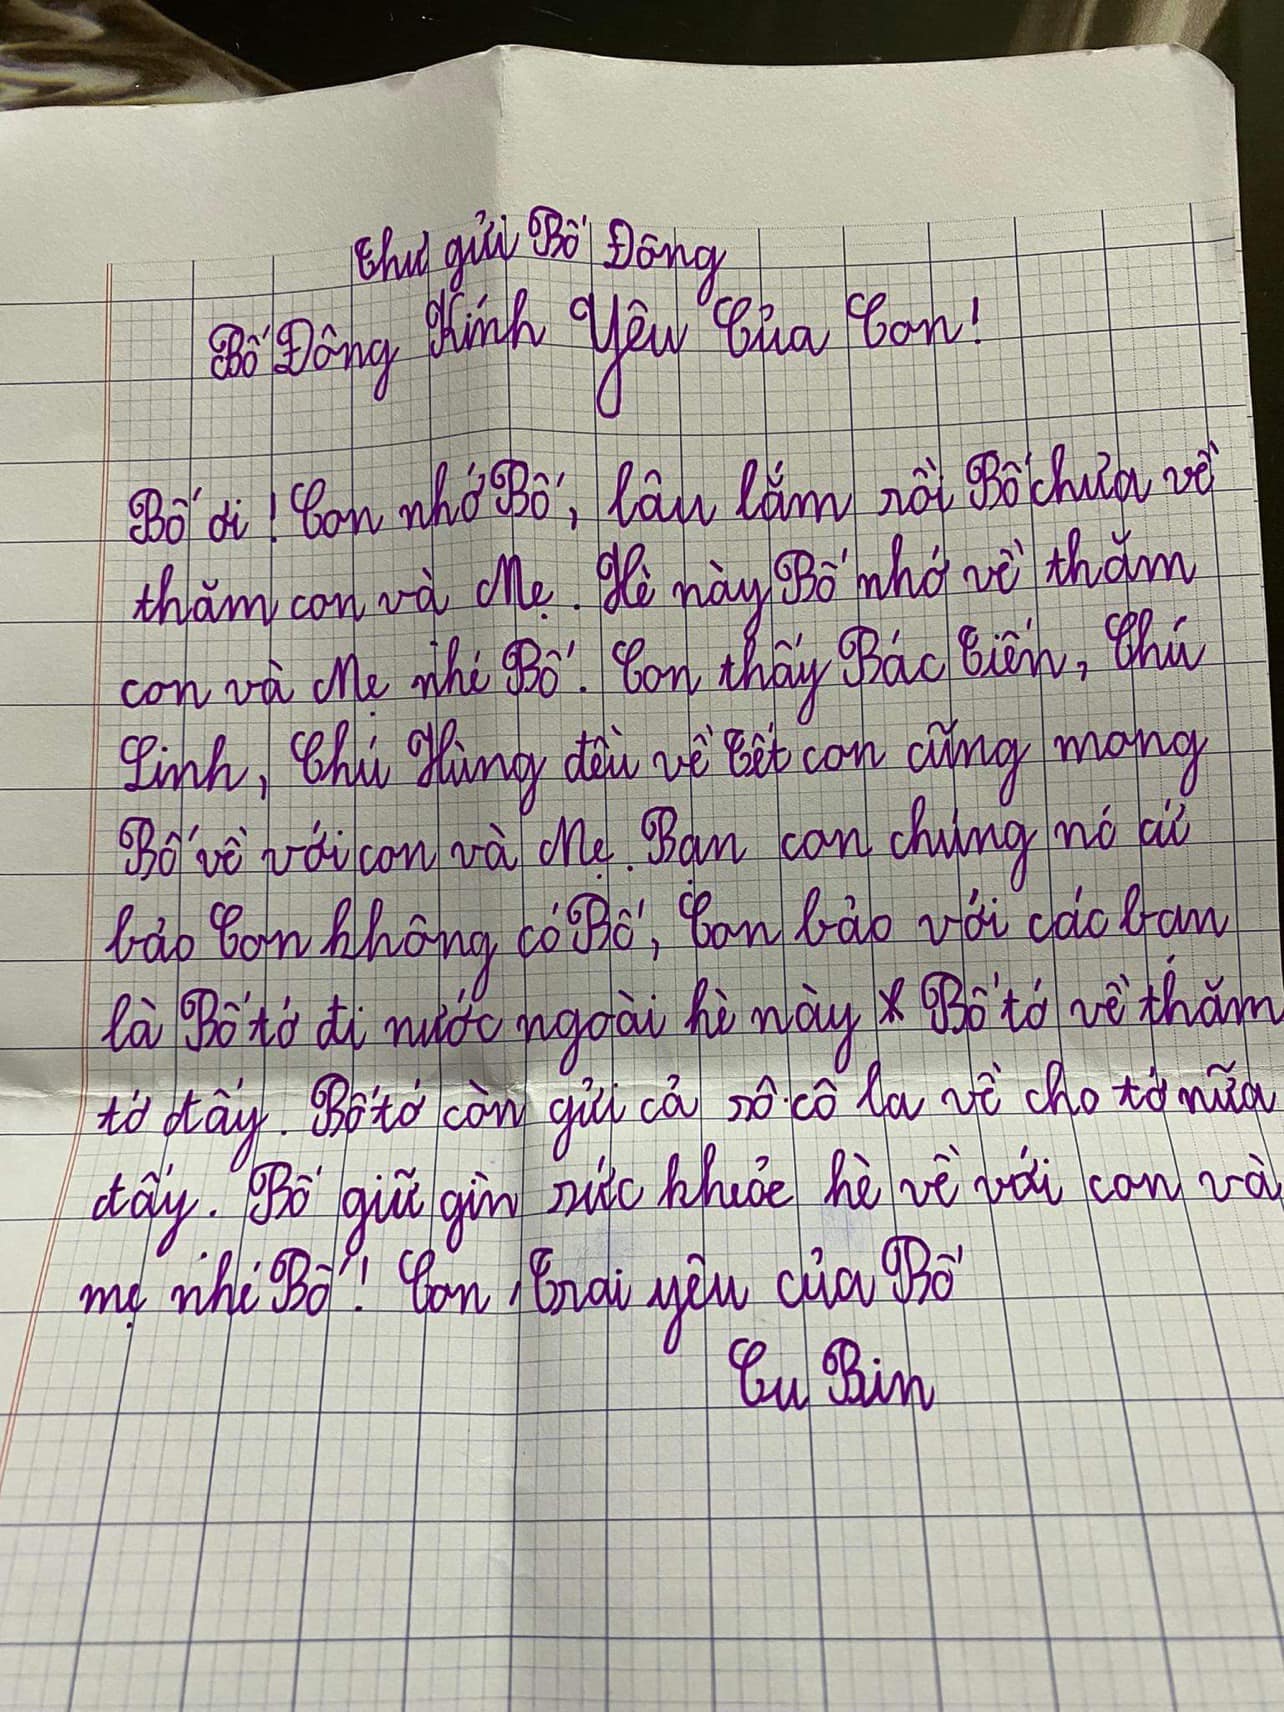 Thư gửi Bố Đông
Bố Đông Kính Yêu Của Con!
Bố ơi! Con nhớ Bố, lâu lắm rồi Bố chưa về
thăm con và Mẹ. Hè này Bố nhớ về thăm
con và Mẹ nhé Bố. Con thấy Bác Tiến, Chú
Linh, Chú Hùng đều về Tết con cũng mong
Bố về với con và Mẹ. Bạn con chúng nó cứ
bảo Con không có Bố, Con bảo với các bạn
là Bố tớ đi nước ngoài hè này Bố tớ về thăm
tớ đấy. Bố tớ còn gửi cả sô cô la về cho tớ nữa
đấy. Bố giữ gìn sức khỏe hè về với con và
mẹ nhé Bố! Con Trai yêu của Bố
Cu Bin